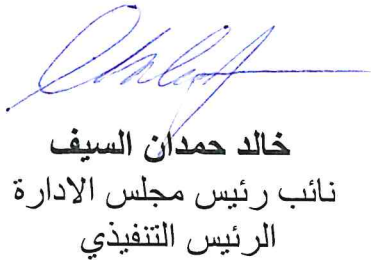 خالد حمدان السيف
نائب رئيس مجلس الادارة
الرئيس التنفيذي